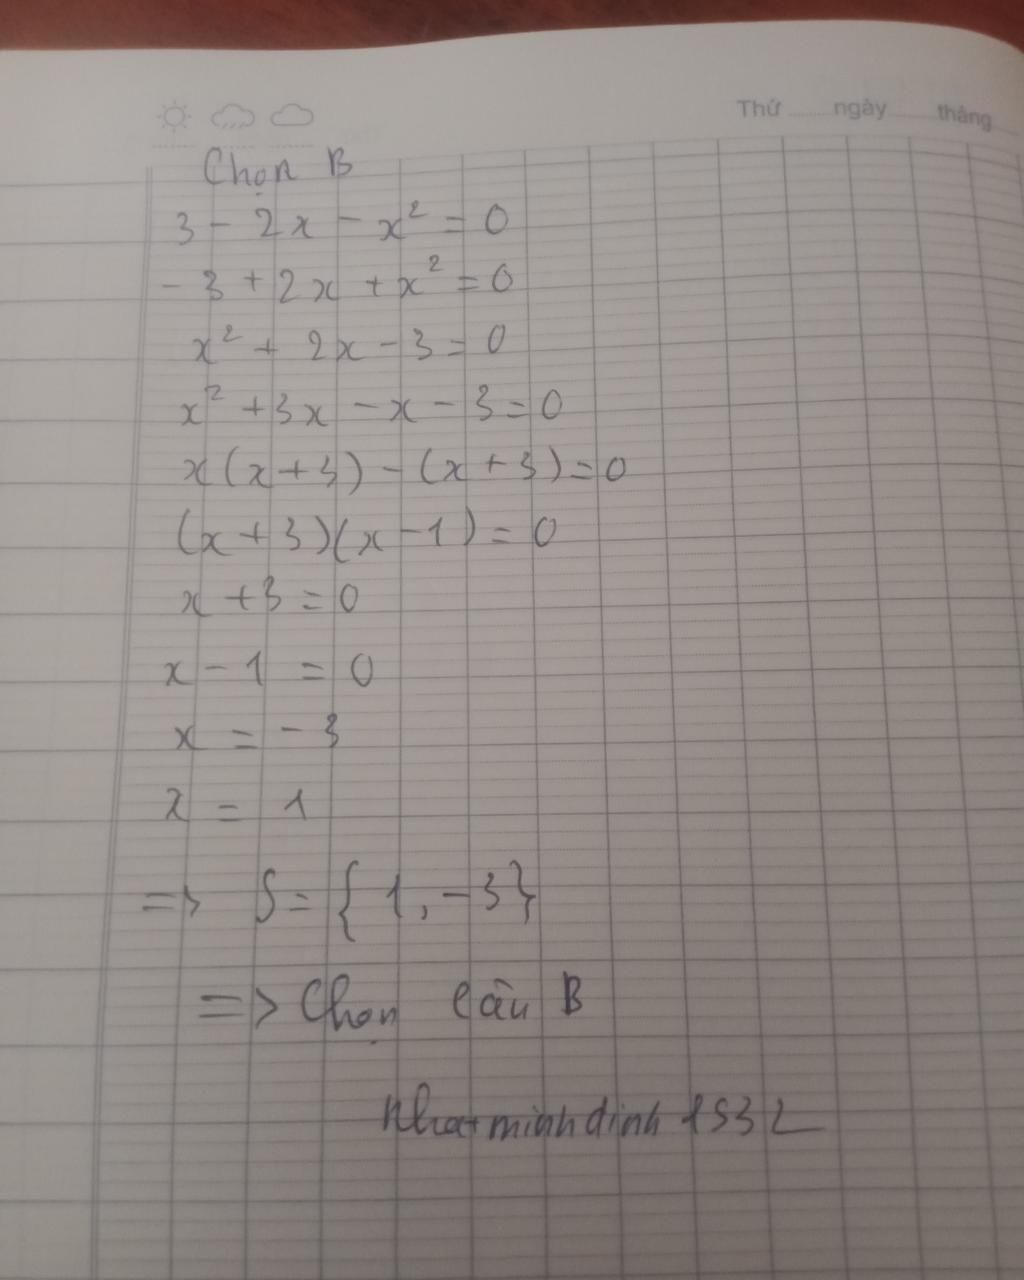 Thứ ngày tháng
Chọn B
3 - 2x - x² = 0
- 3 + 2x + x² = 0
x² + 2x - 3 = 0
x² + 3x - x - 3 = 0
x(x+3) - (x+3) = 0
(x+3)(x-1) = 0
x + 3 = 0
x - 1 = 0
x = - 3
x = 1
=> S = {1, -3}
=> Chọn câu B
nhatminhdinh 1532